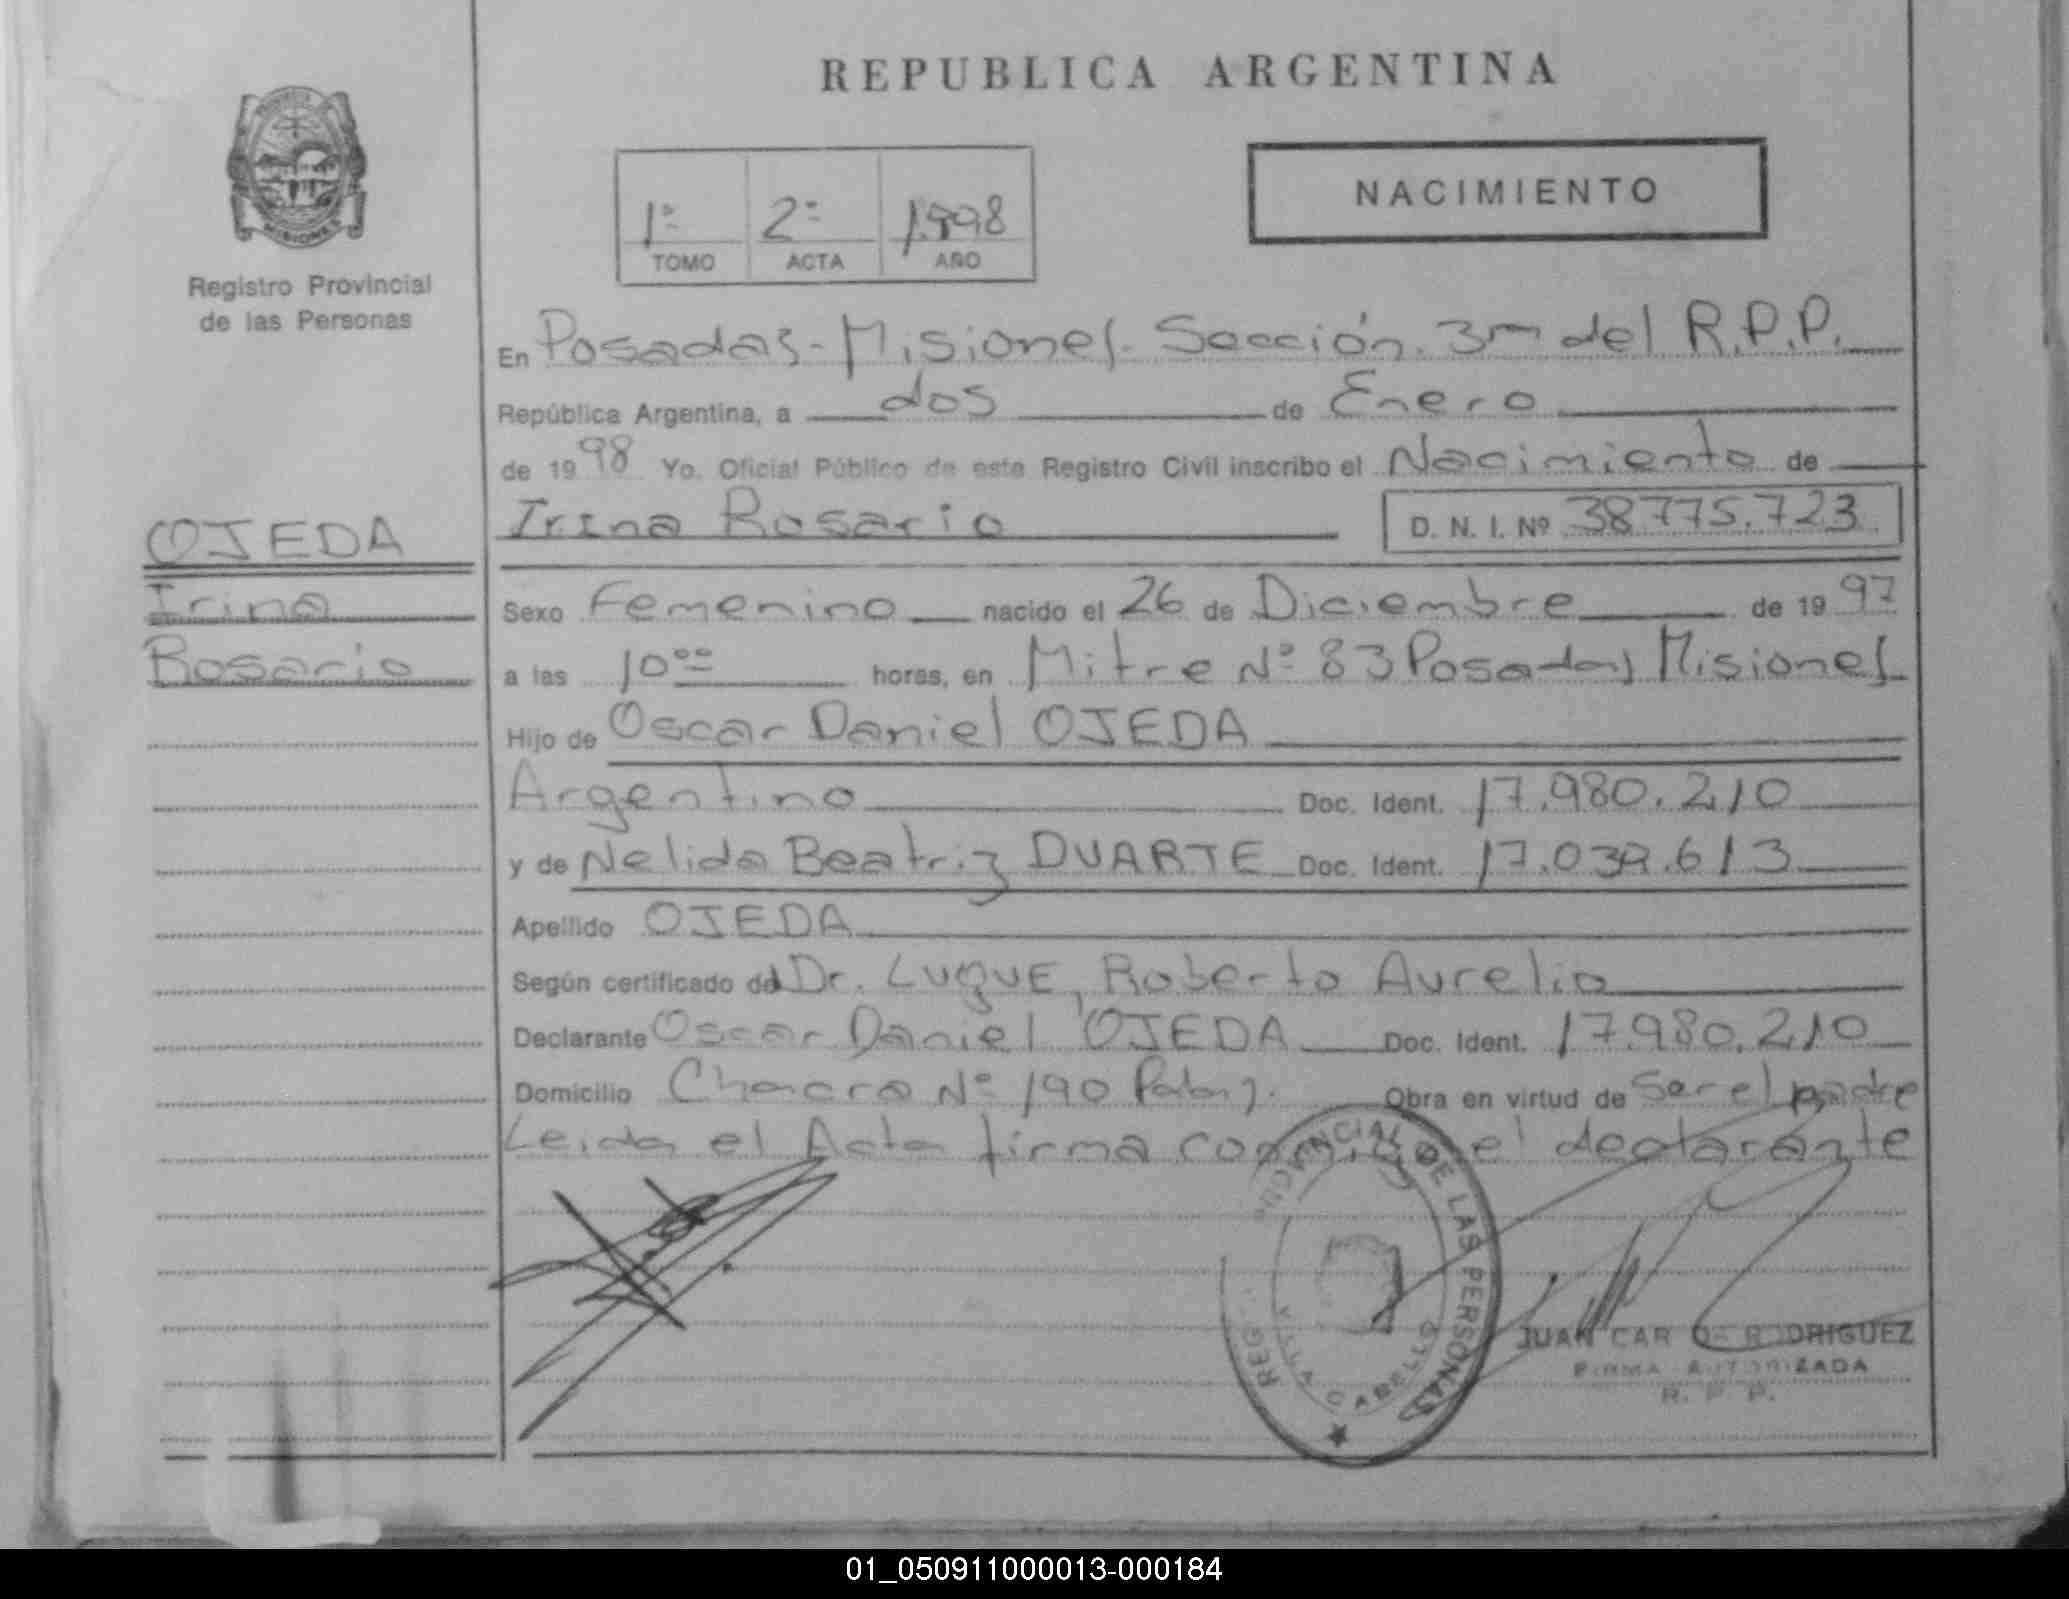 REPUBLICA ARGENTINA
MISIONES
Registro Provincial
de las Personas
1º 2º 1.998
TOMO ACTA AÑO
NACIMIENTO
En Posadas - Misiones - Sección 3ra del R.P.P.
República Argentina, a dos de Enero
de 1998 Yo. Oficial Público de este Registro Civil inscribo el Nacimiento de
Irina Rosario D. N. I. Nº 38775.723
OJEDA
Irina
Rosario
Sexo Femenino nacido el 26 de Diciembre de 1997
a las 10°° horas, en Mitre Nº 83 Posadas Misiones
Hijo de Oscar Daniel OJEDA
Argentino Doc. Ident. 17.980.210
y de Nelida Beatriz DUARTE Doc. Ident. 17.039.613
Apellido OJEDA
Según certificado del Dr. LUQUE, Roberto Aurelio
Declarante Oscar Daniel OJEDA Doc. Ident. 17.980.210
Domicilio Chacra Nº 190 Obra en virtud de Ser el padre
Leida el Acta firma conmigo el declarante
REG. PROVINCIAL DE LAS PERSONAS
VILLA CABELLO
JUAN CAR RODRIGUEZ
FIRMA AUTORIZADA
R. P. P.
01_050911000013-000184